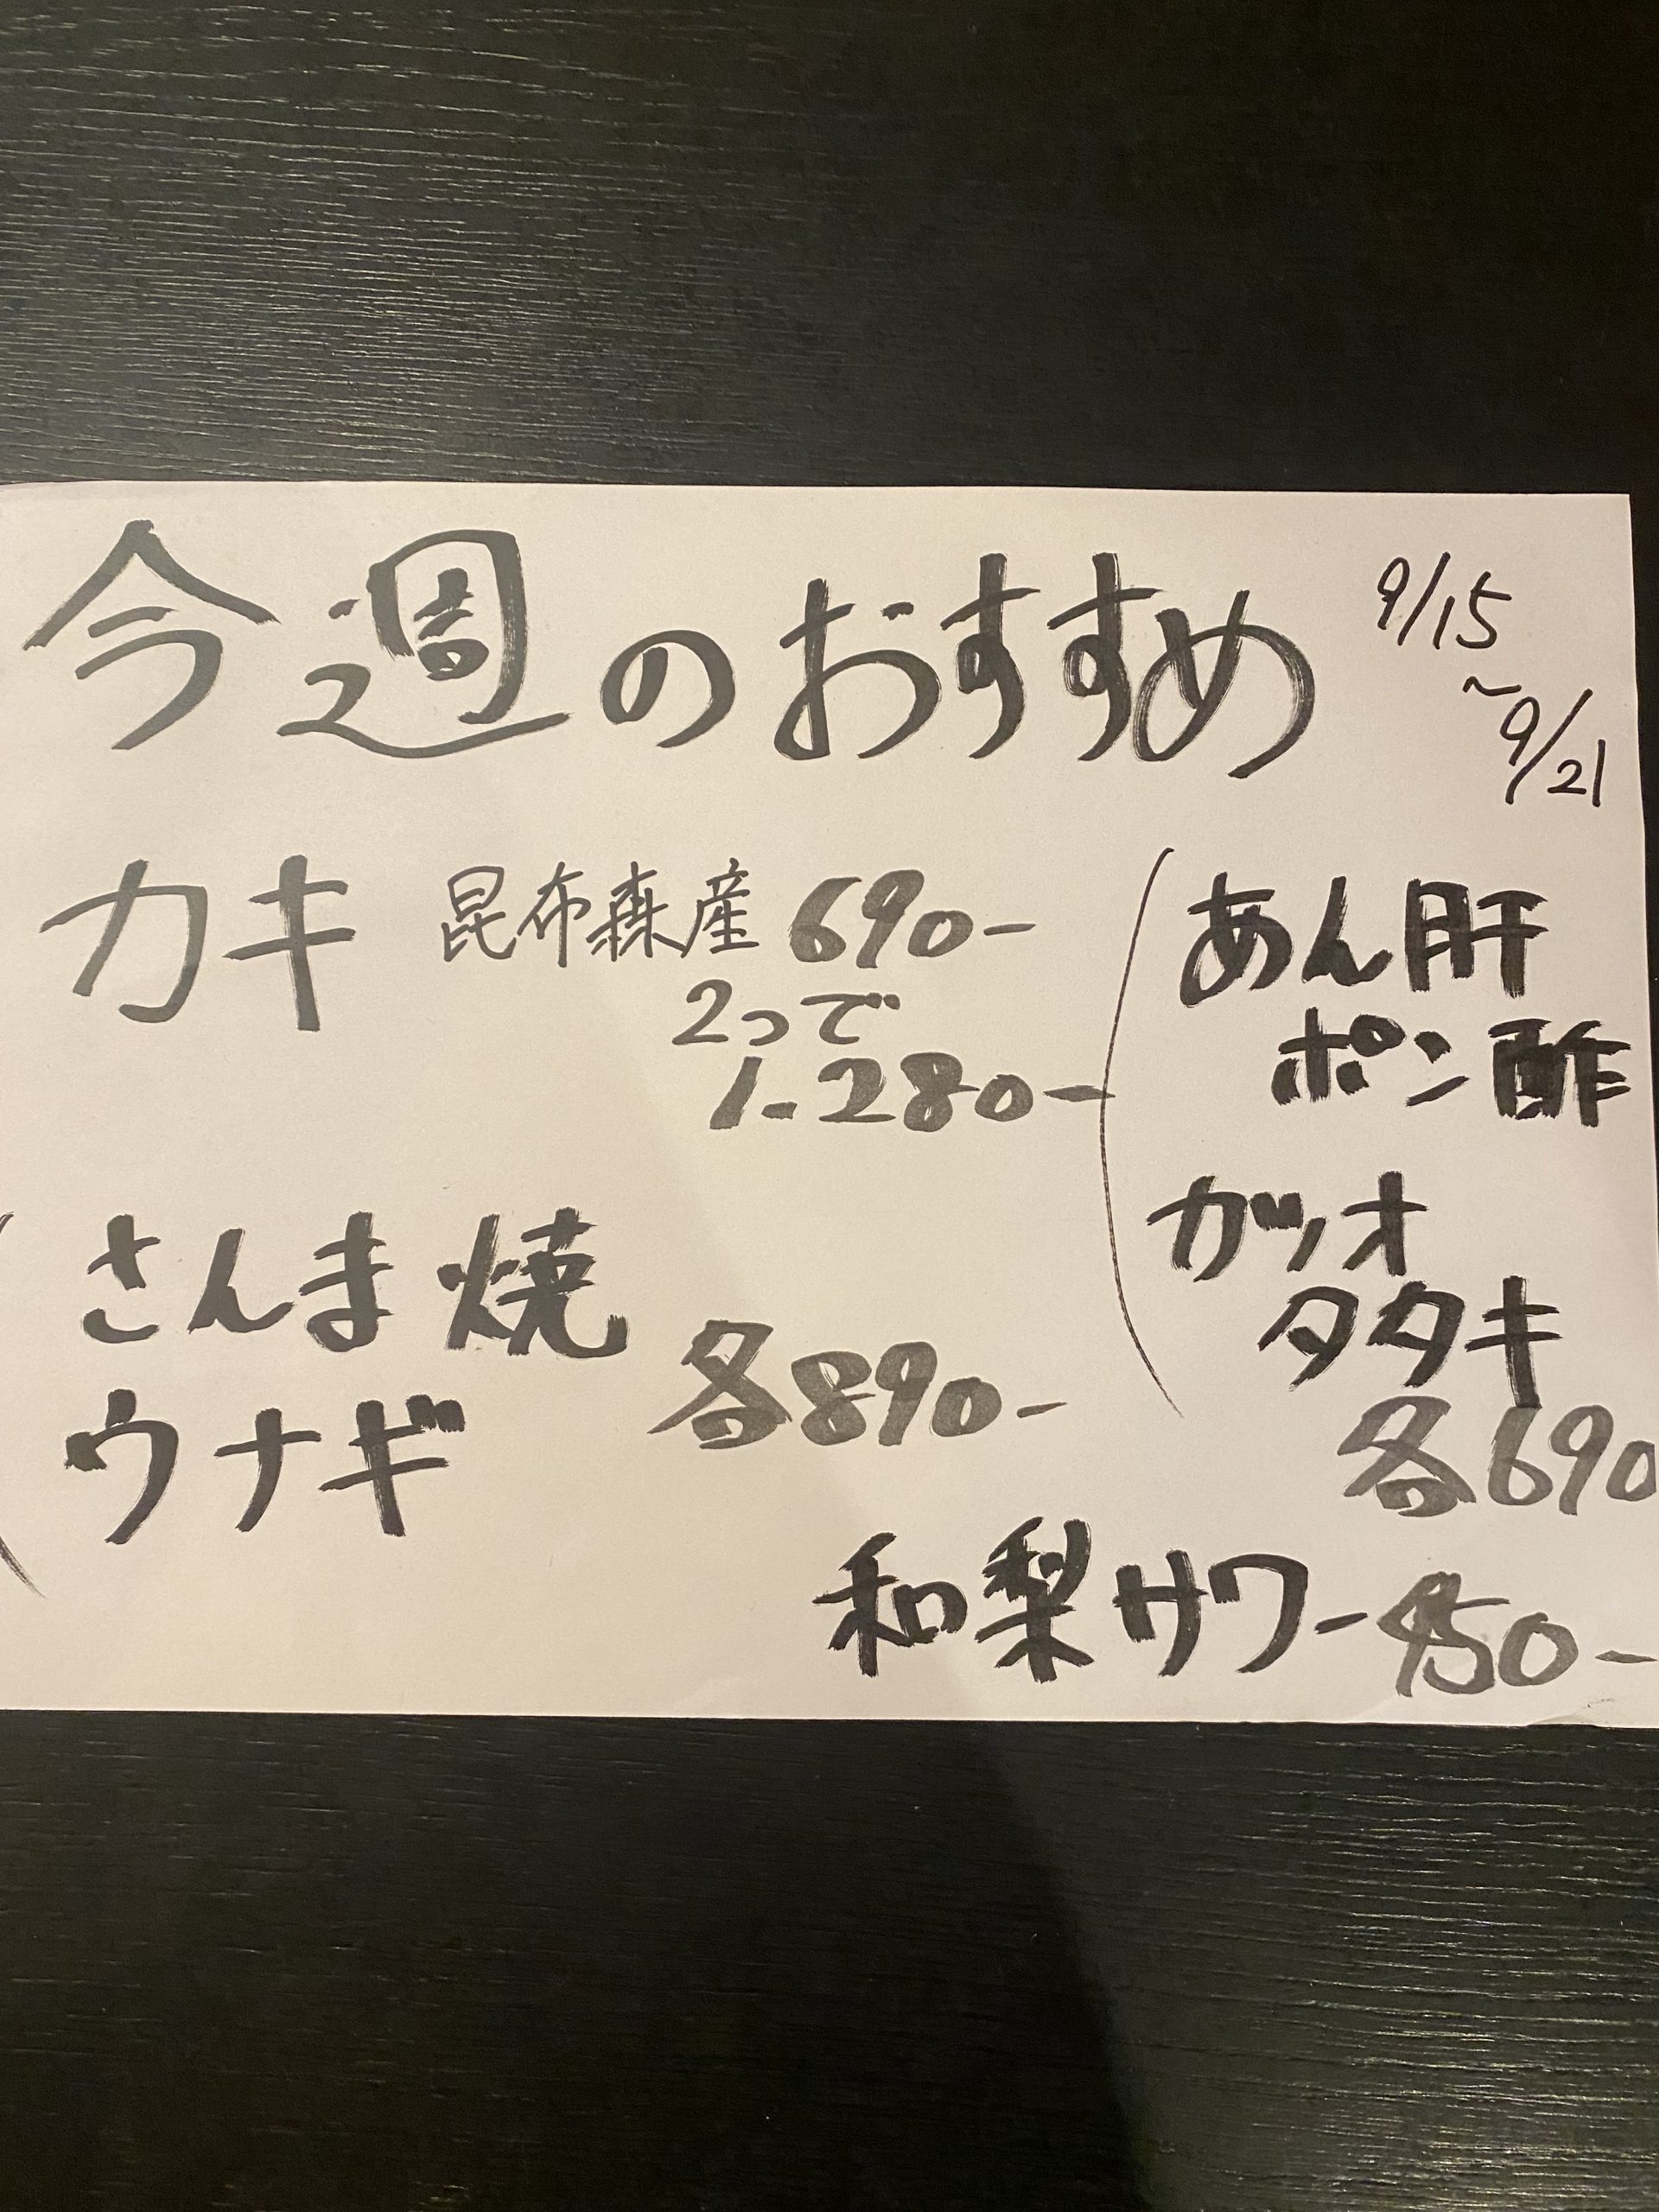 今週のおすすめ
9/15
~9/21
カキ 昆布森産 690-
2つで
1.280-
さんま焼
ウナギ
各890-
あん肝
ポン酢
カツオ
タタキ
各690
和梨サワー450-